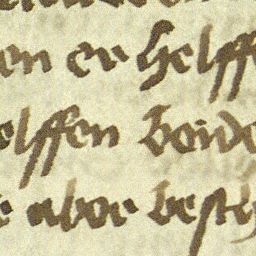 en er helff
elffen beide
e aboe besth